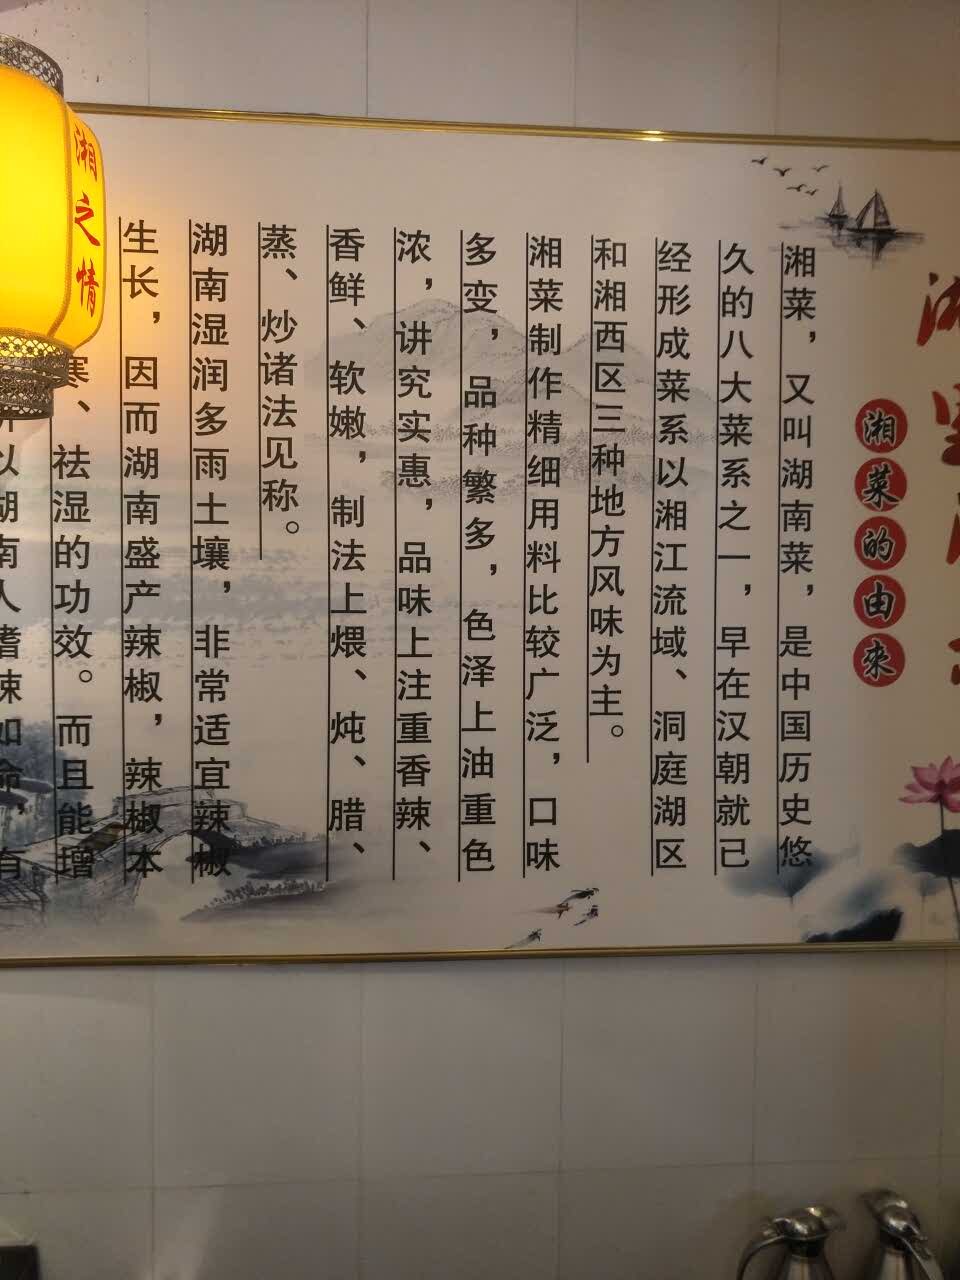 湘菜的由来
湘菜，又叫湖南菜，是中国历史悠
久的八大菜系之一，早在汉朝就已
经形成菜系以湘江流域、洞庭湖区
和湘西区三种地方风味为主。
湘菜制作精细用料比较广泛，口味
多变，品种繁多，色泽上油重色
浓，讲究实惠，品味上注重香辣、
香鲜、软嫩，制法上煨、炖、腊、
蒸、炒诸法见称。
湖南湿润多雨土壤，非常适宜辣椒
生长，因而湖南盛产辣椒，辣椒本
寒、祛湿的功效。而且能增
以湖南人嗜辣如命，有
湘之情